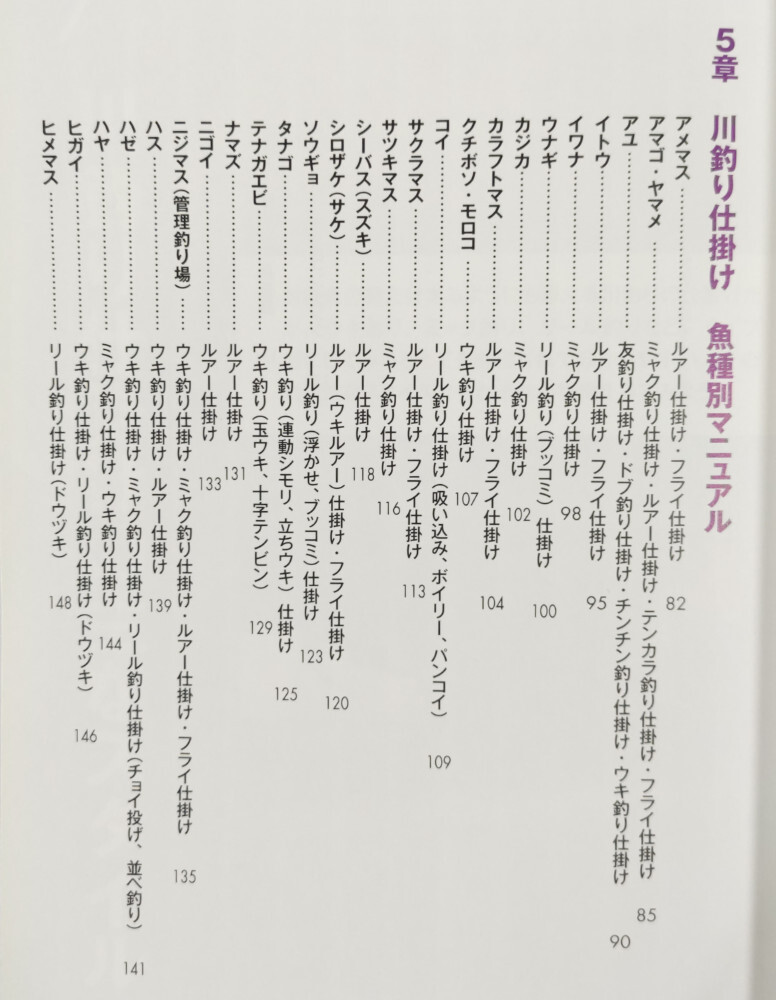 5章 川釣り仕掛け 魚種別マニュアル
アメマス……………………ルアー仕掛け・フライ仕掛け 82
アマゴ・ヤマメ……………ミャク釣り仕掛け・ルアー仕掛け・テンカラ釣り仕掛け・フライ仕掛け 85
アユ…………………………友釣り仕掛け・ドブ釣り仕掛け・チンチン釣り仕掛け・ウキ釣り仕掛け 90
イトウ………………………ルアー仕掛け・フライ仕掛け 95
イワナ………………………ミャク釣り仕掛け 98
ウナギ………………………リール釣り(ブッコミ)仕掛け 100
カジカ………………………ミャク釣り仕掛け 102
カラフトマス………………ルアー仕掛け・フライ仕掛け 104
クチボソ・モロコ…………ウキ釣り仕掛け 107
コイ…………………………リール釣り仕掛け(吸い込み、ボイリー、パンコイ) 109
サクラマス…………………ルアー仕掛け・フライ仕掛け 113
サツキマス…………………ミャク釣り仕掛け 116
シーバス(スズキ)…………ルアー仕掛け 118
シロザケ(サケ)……………ルアー(ウキルアー)仕掛け・フライ仕掛け 120
ソウギョ……………………リール釣り(浮かせ、ブッコミ)仕掛け 123
タナゴ………………………ウキ釣り(連動シモリ、立ちウキ)仕掛け 125
テナガエビ…………………ウキ釣り(玉ウキ、十字テンビン) 129
ナマズ………………………ルアー仕掛け 131
ニゴイ………………………ルアー仕掛け 133
ニジマス(管理釣り場)……ウキ釣り仕掛け・ミャク釣り仕掛け・ルアー仕掛け・フライ仕掛け 135
ハス…………………………ウキ釣り仕掛け・ルアー仕掛け 139
ハゼ…………………………ウキ釣り仕掛け・ミャク釣り仕掛け・リール釣り仕掛け(チョイ投げ、並べ釣り) 141
ハヤ…………………………ミャク釣り仕掛け・ウキ釣り仕掛け 144
ヒガイ………………………ウキ釣り仕掛け・リール釣り仕掛け(ドウヅキ) 146
ヒメマス……………………リール釣り仕掛け(ドウヅキ) 148